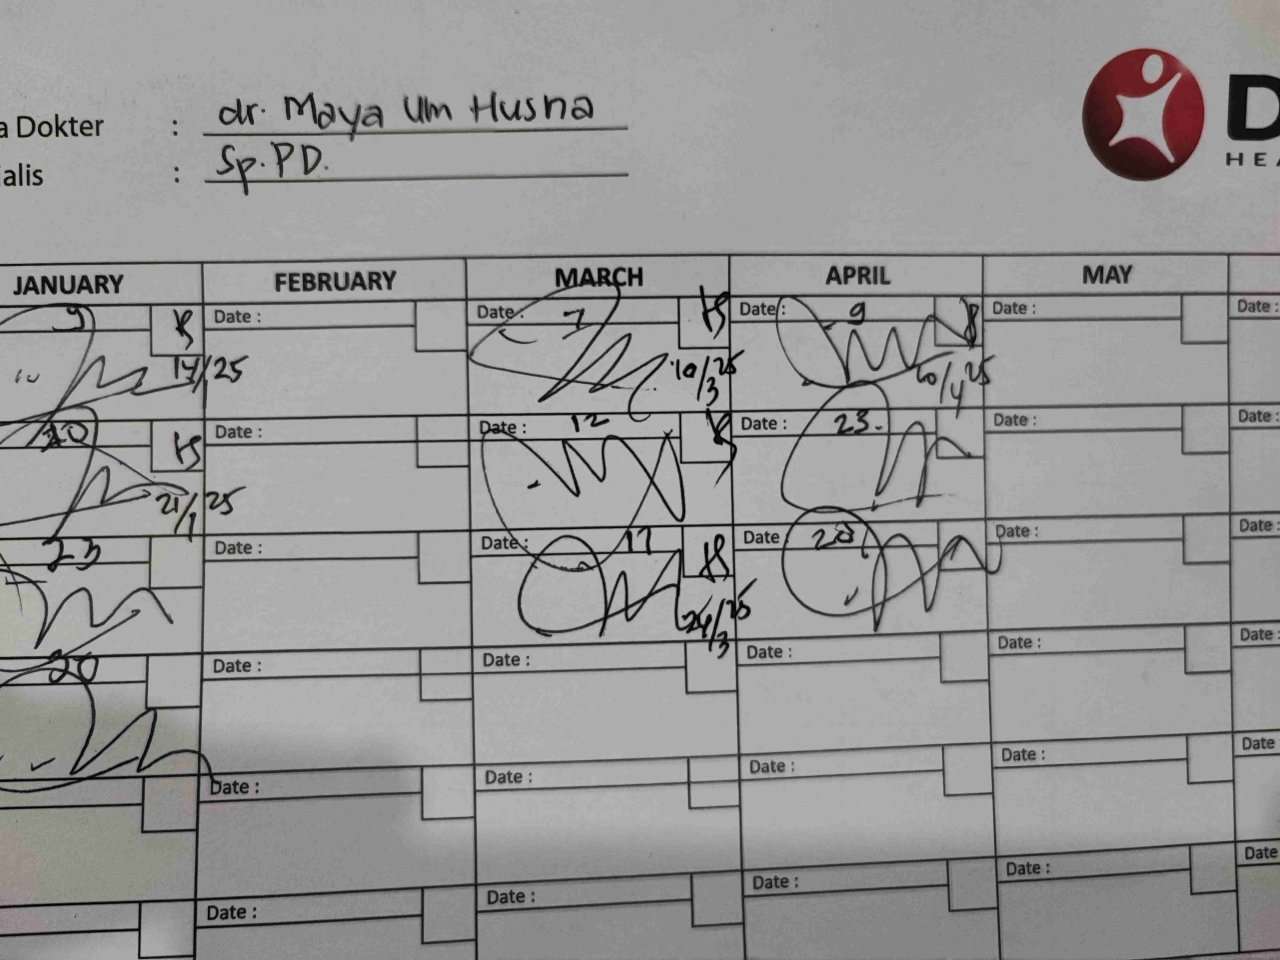 a Dokter : dr. Maya Um Husna
ialis : Sp.PD.
D
HEA
JANUARY FEBRUARY MARCH APRIL MAY
9 Date : Date : 7 Date : 9 Date : Date :
14/ 25 10/3 25 10/4 25
20 Date : Date : 12 Date : 23. Date : Date :
21/1 25
23 Date : Date : 17 Date : Date : Date :
24/3 25
Date : Date : Date : Date : Date :
Date : Date : Date : Date : Date
Date : Date : Date : Date : Date